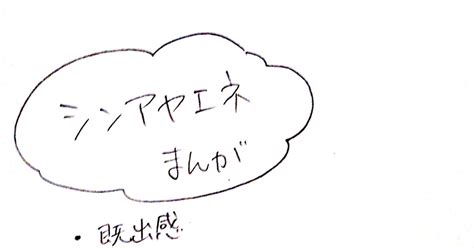 シンアヤエネ
まんが
・既出感